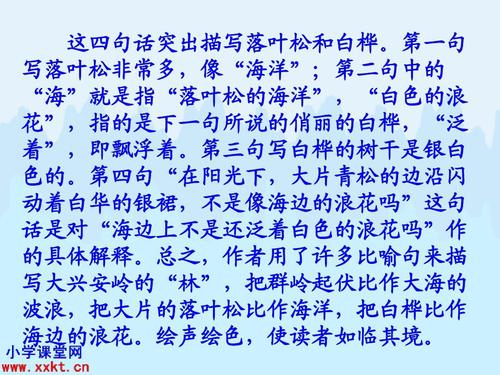 这四句话突出描写落叶松和白桦。第一句
写落叶松非常多，像“海洋”；第二句中的
“海”就是指“落叶松的海洋”，“白色的浪
花”，指的是下一句所说的俏丽的白桦，“泛
着”，即飘浮着。第三句写白桦的树干是银白
色的。第四句“在阳光下，大片青松的边沿闪
动着白华的银裙，不是像海边的浪花吗”这句
话是对“海边上不是还泛着白色的浪花吗”作
的具体解释。总之，作者用了许多比喻句来描
写大兴安岭的“林”，把群岭起伏比作大海的
波浪，把大片的落叶松比作海洋，把白桦比作
海边的浪花。绘声绘色，使读者如临其境。
小学课堂网
www.xxkt.cn